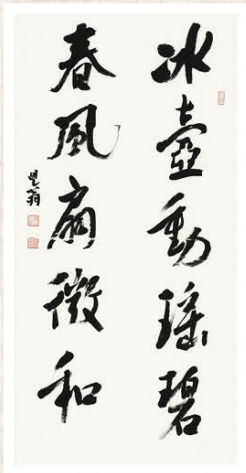 冰壺動瑤碧
春風扇微和